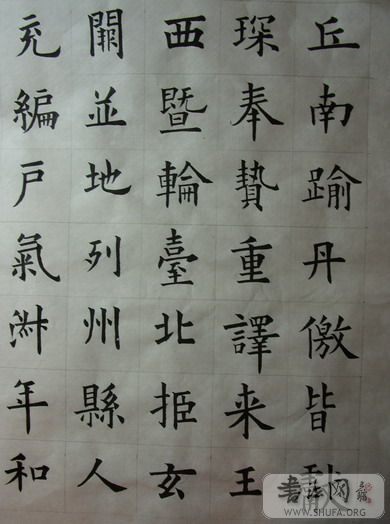 丘南踰丹徼皆
琛奉贄重譯来王
西暨輪臺北拒玄
闕並地列州縣人
充編戶氣淑年和
書法网
WWW.SHUFA.ORG